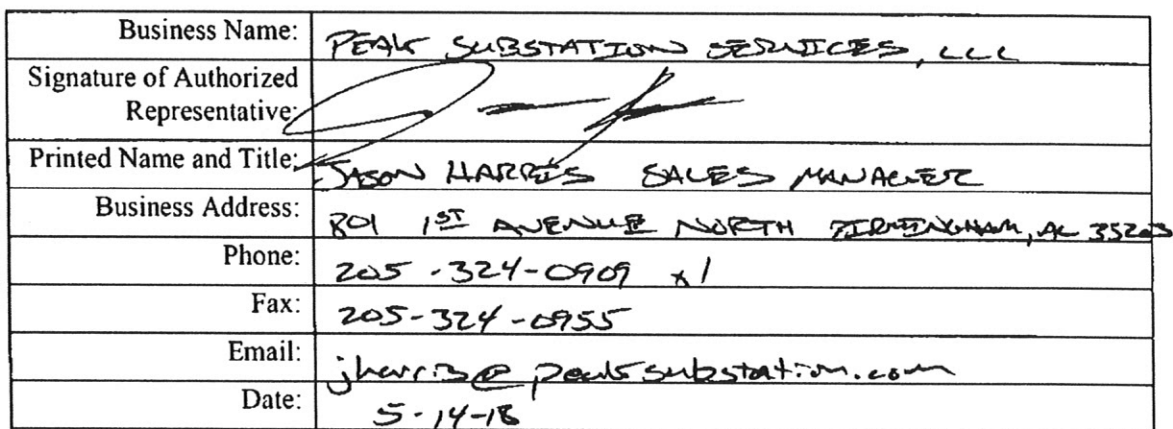 Business Name: PEAK SUBSTATION SERVICES, LLC
Signature of Authorized
Representative:
Printed Name and Title: JASON HARRIS SALES MANAGER
Business Address: 801 1ST AVENUE NORTH BIRMINGHAM, AL 35203
Phone: 205-324-0909 x1
Fax: 205-324-0955
Email: jharris@peaksubstation.com
Date: 5-14-18